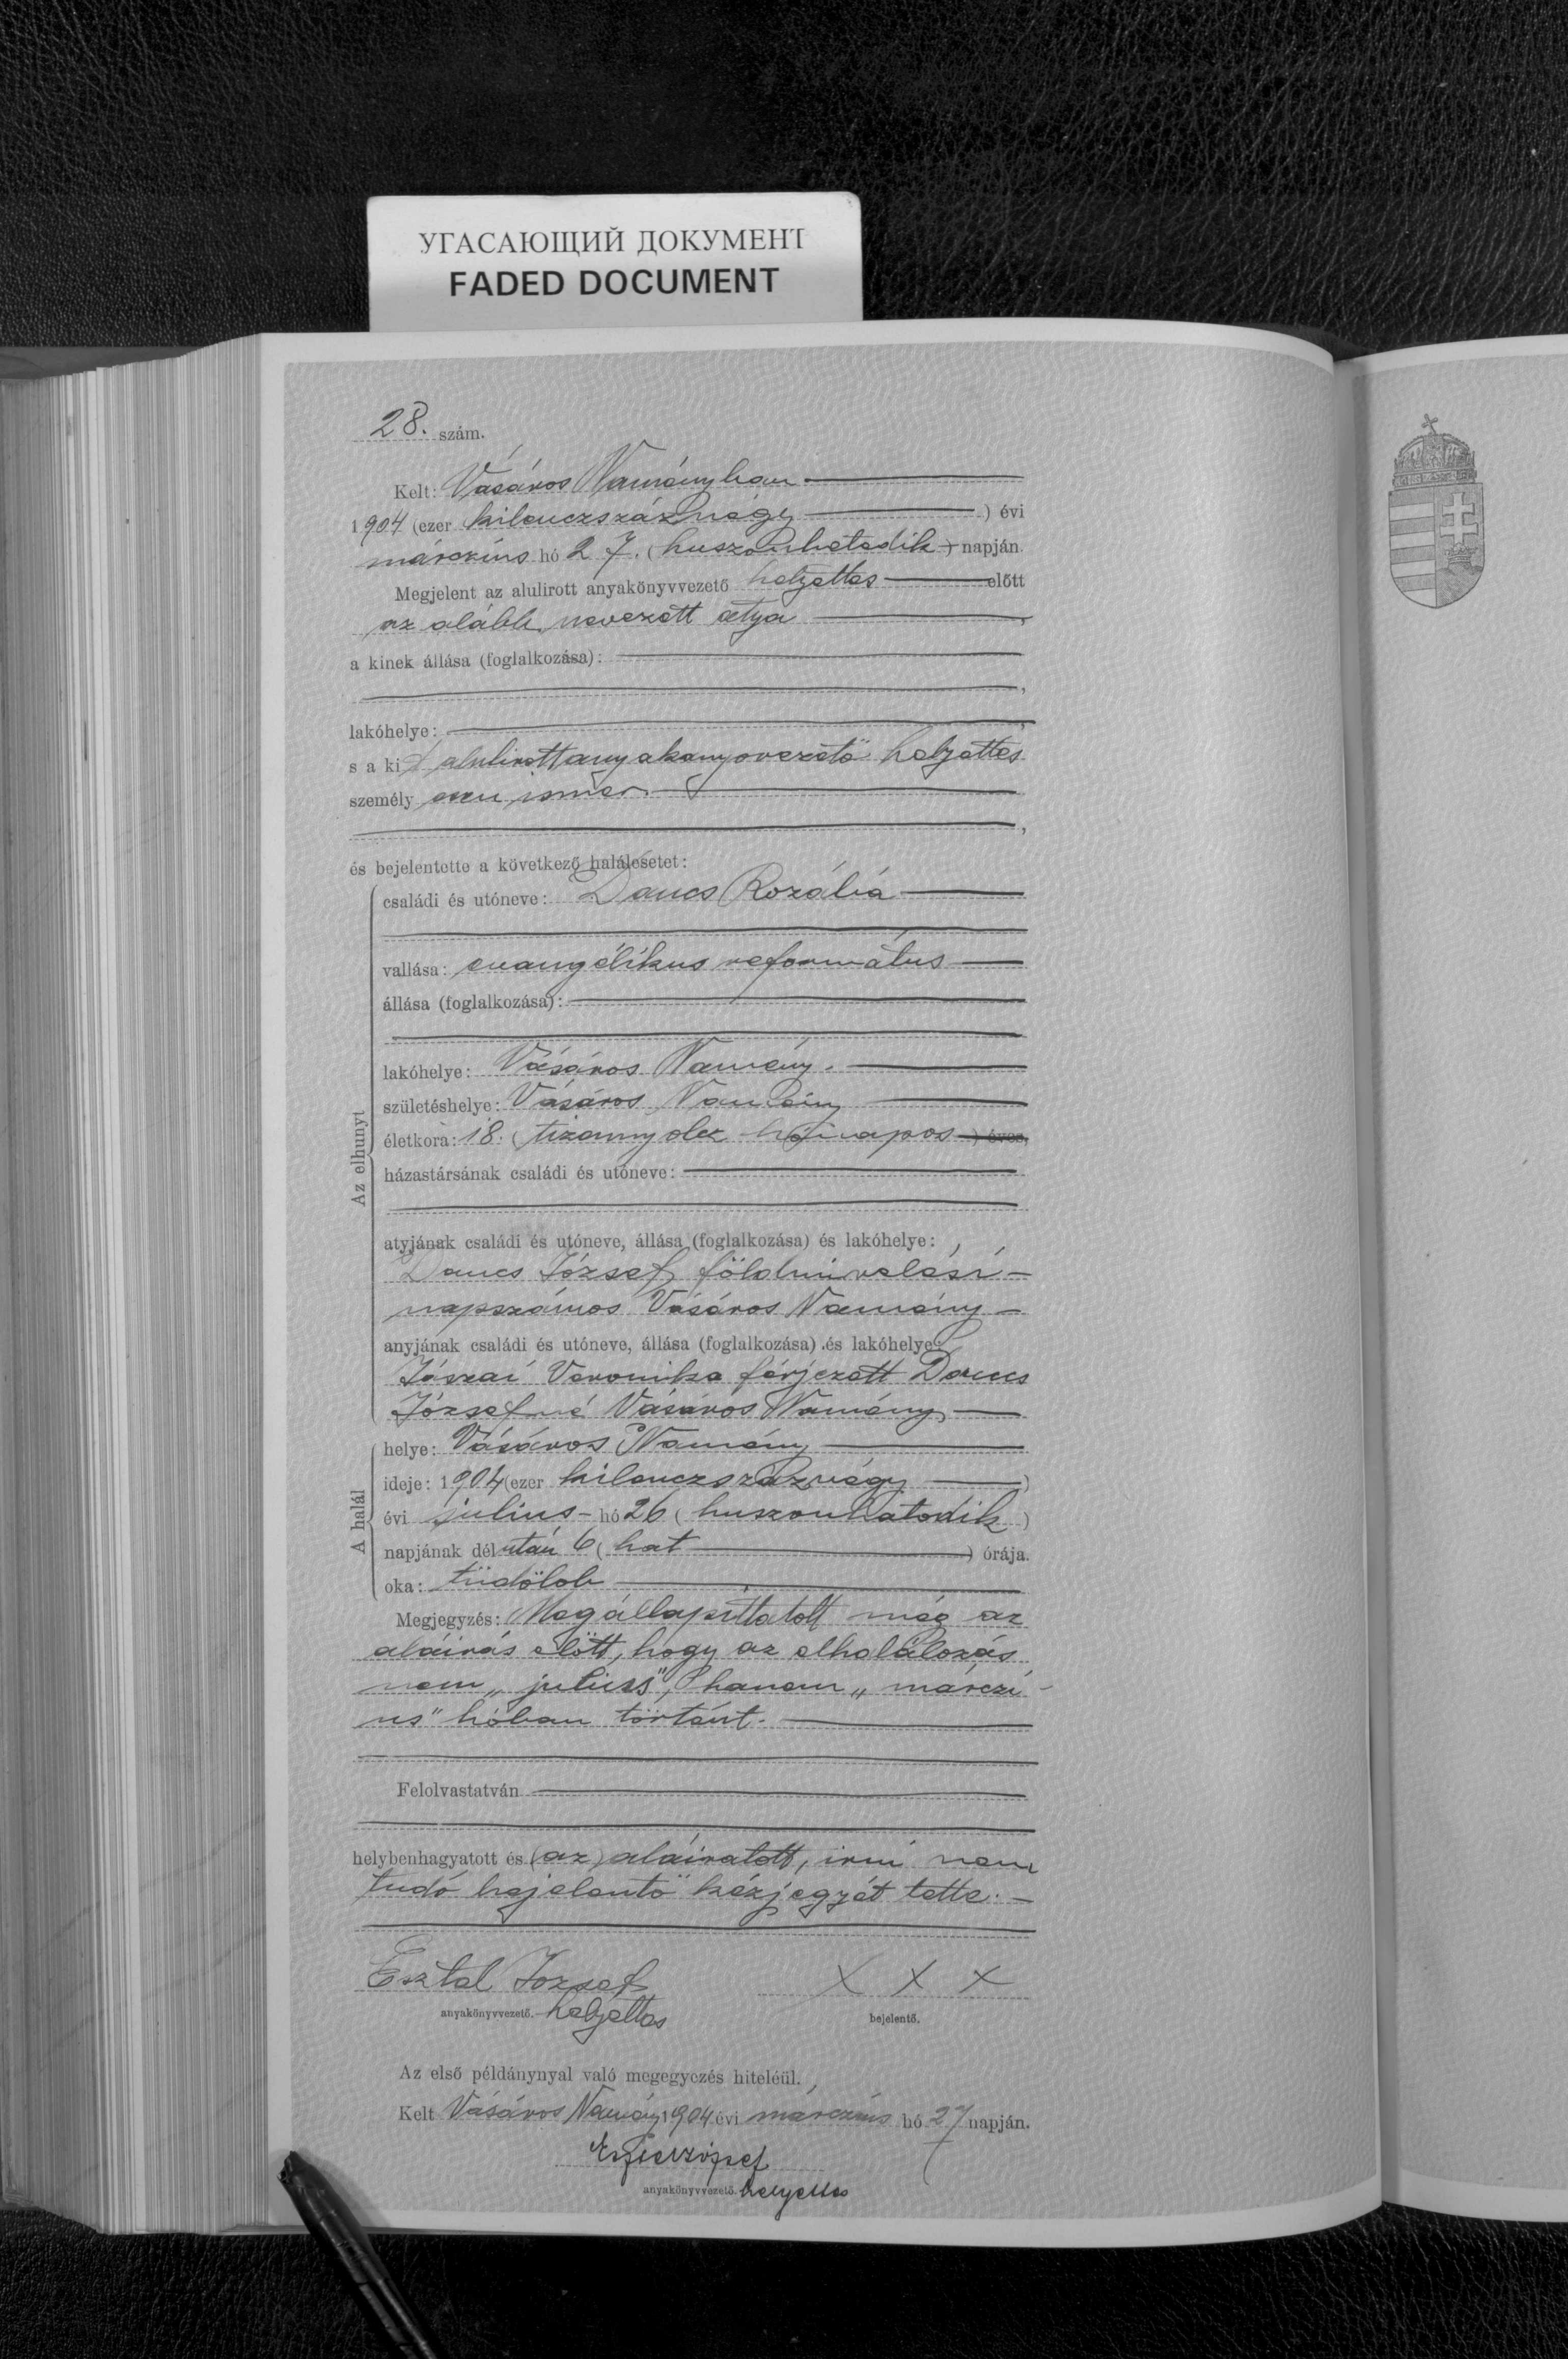 УГАСАЮЩИЙ ДОКУМЕНТ
FADED DOCUMENT
28. szám.
Kelt: Vásáros Naményban
1904 (ezer kilenczszáz négy ) évi
márczius hó 27. (huszonhetedik) napján.
Megjelent az alulirott anyakönyvvezető helyettes előtt
az alább nevezett atya ,
a kinek állása (foglalkozása):
lakóhelye:
s a kit alulirott anyakönyvvezető helyettes
személy esen ismer
és bejelentette a következő halálesetet:
Az elhunyt
családi és utóneve: Dancs Rozália
vallása: evangélikus református
állása (foglalkozása):
lakóhelye: Vásáros Namény.
születéshelye: Vásáros Namény
életkora: 18. (tizennyolcz hónapos ) éves,
házastársának családi és utóneve:
atyjának családi és utóneve, állása (foglalkozása) és lakóhelye:
Dancs József földmivelési
napszámos Vásáros Namény
anyjának családi és utóneve, állása (foglalkozása) és lakóhelye:
Jászai Veronika férjezett Dancs
Józsefné Vásáros Namény
A halál
helye: Vásáros Namény
ideje: 1904 (ezer kilenczszáz négy )
évi julius hó 26 (huszonhatodik )
napjának délután 6 (hat ) órája.
oka: tüdőlob
Megjegyzés: Megállapittatott még az
aláirás előtt, hogy az elhalálozás
nem „julius", hanem „márczi-
us" hóban történt.
Felolvastatván
helybenhagyatott és (az) aláiratott, irni nem
tudó bejelentő kézjegyét tette.
Esztel József X X X
anyakönyvvezető. helyettes bejelentő.
Az első példánynyal való megegyezés hiteléül.
Kelt Vásáros Namény 1904 évi márczius hó 27 napján.
anyakönyvvezető. helyettes